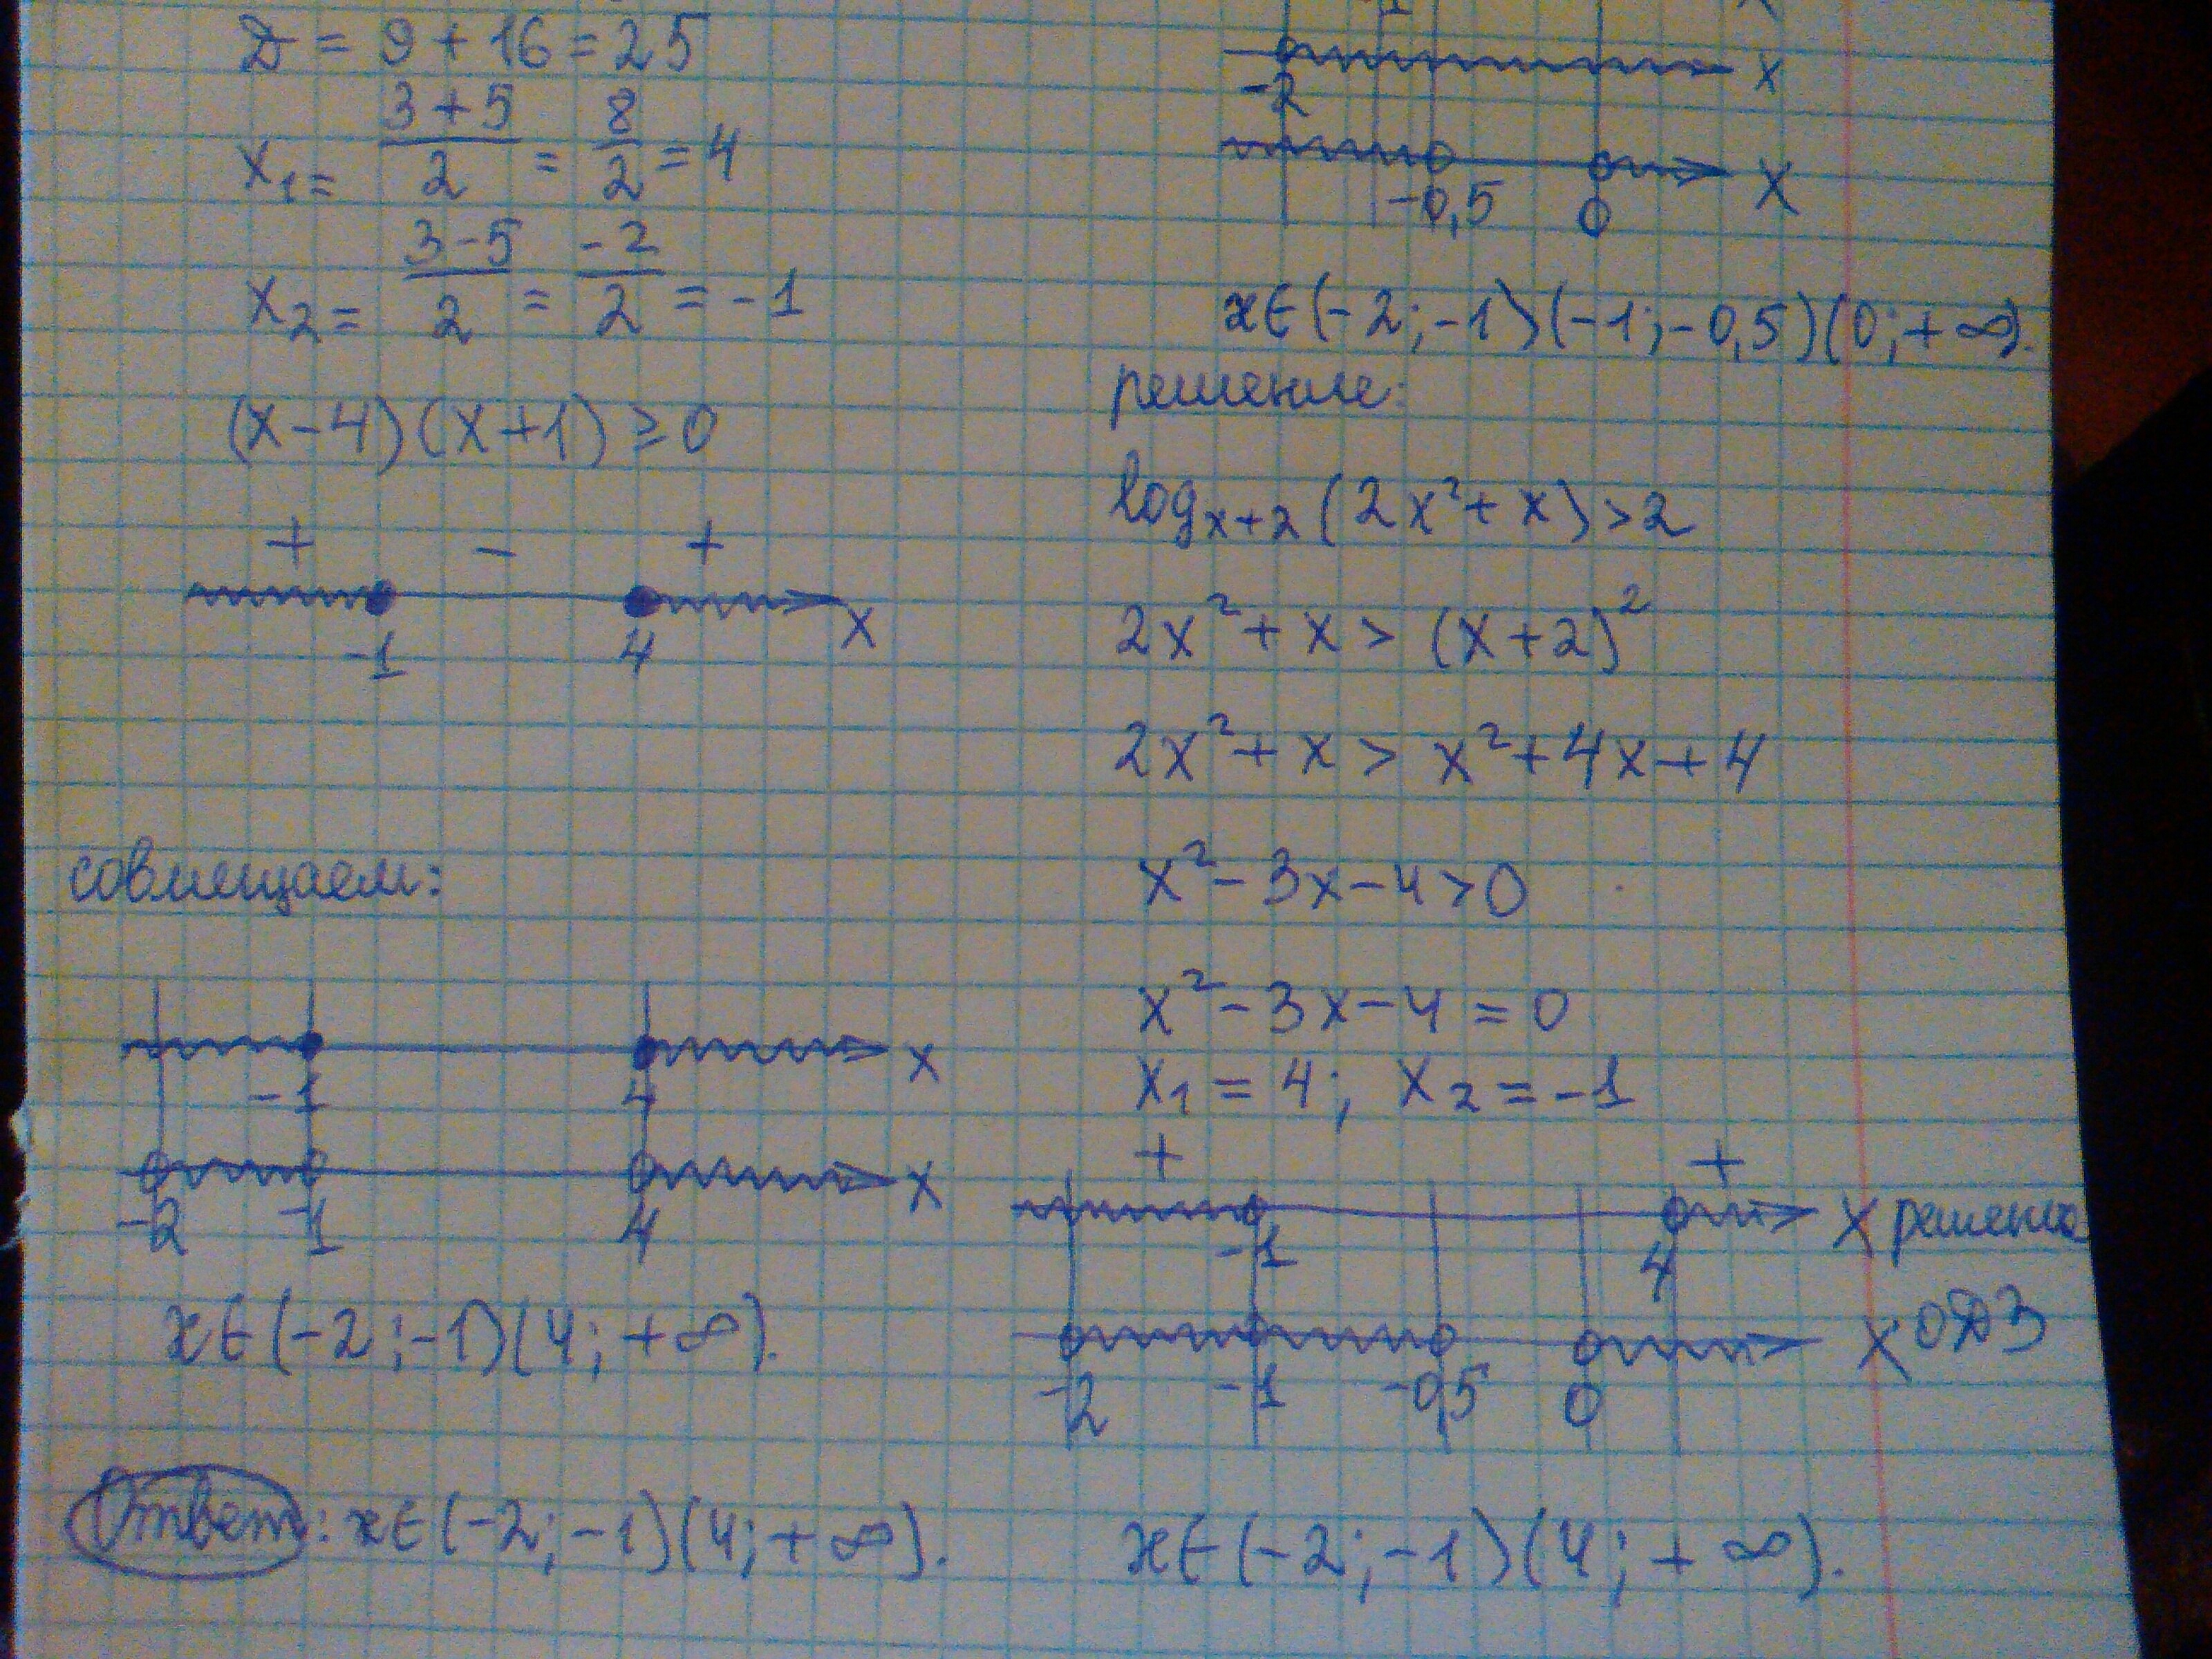 D = 9 + 16 = 25
x₁ = (3+5)/2 = 8/2 = 4
x₂ = (3-5)/2 = -2/2 = -1
(x-4)(x+1) ≥ 0
+ - +
-1 4 x
совмещаем:
-1 4 x
-2 -1 4 x
x∈(-2;-1)(4;+∞).
Ответ: x∈(-2;-1)(4;+∞).
-2 x
-0,5 0 x
x∈(-2;-1)(-1;-0,5)(0;+∞).
решение:
log_{x+2}(2x²+x)>2
2x²+x > (x+2)²
2x²+x > x²+4x+4
x²-3x-4>0
x²-3x-4=0
x₁=4; x₂=-1
+ +
-1 4 x решение
-2 -1 -0,5 0 x ОДЗ
x∈(-2;-1)(4;+∞).